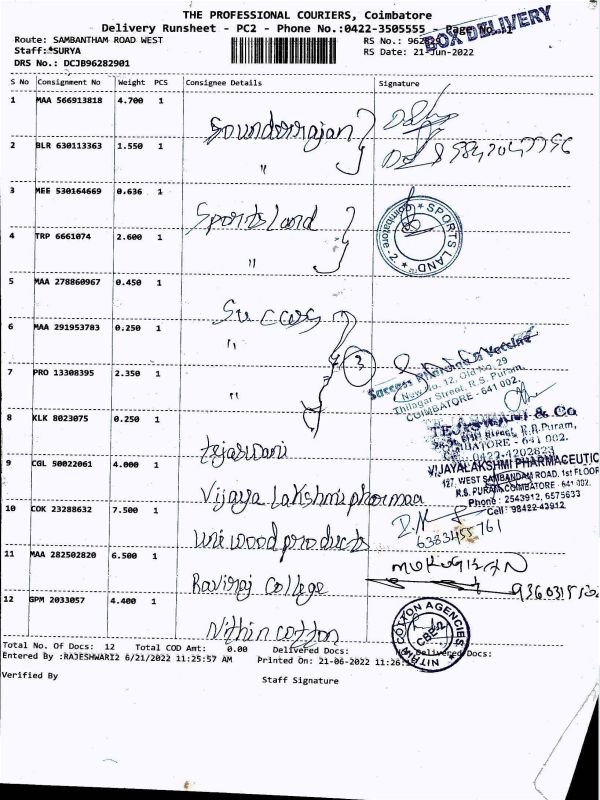 THE PROFESSIONAL COURIERS, Coimbatore
Delivery Runsheet - PC2 - Phone No.:0422-3505555 - Page No.
BOX DELIVERY
Route: SAMBANTHAM ROAD WEST
RS No.:
Staff:*SURYA
RS Date: 21-Jun-2022
DRS No.: DCJB96282901
S No Consignment No Weight PCS Consignee Details Signature
1 MAA 566913818 4.700 1
Sounderrajan
2 BLR 630113363 1.550 1
"
3 MEE 530164669 0.636 1
Sports Land
SPORTS LAND
4 TRP 6661074 2.600 1
"
5 MAA 278860967 0.450 1
Success
6 MAA 291953783 0.250 1
"
3
New No. 12, Old No. 29
Thilagar Street, R.S. Puram,
COIMBATORE - 641 002.
7 PRO 13308395 2.350 1
"
8 KLK 8023075 0.250 1
tejaswani
TEJASWANI & Co
9 CGL 50022061 4.000 1
Vijaya Lakshmi pharmaa
VIJAYALAKSHMI PHARMACEUTIC
127, WEST SAMBANDAM ROAD, 1st FLOOR
R.S. PURAM, COIMBATORE - 641 002.
Phone : 2543912, 6575633
Cell : 98422-43912
10 COK 23288632 7.500 1
uni wood products
6383455761
11 MAA 282502820 6.500 1
Raviraj College
MUROGESAN
12 GPM 2033057 4.400 1
Nithin cotton
NITHIN COTTON AGENCIES
CBE-2
Total No. Of Docs: 12 Total COD Amt: 0.00 Delivered Docs: Delivered Docs:
Entered By :RAJESHWARI2 6/21/2022 11:25:57 AM Printed On: 21-06-2022 11:26:
Verified By
Staff Signature